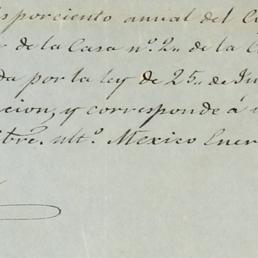 sporciento anual del C
de la Casa nº. 2,, de la C
da por la ley de 25,, de Ju
cion, y corresponde á
bre. ult°. Mexico Ener